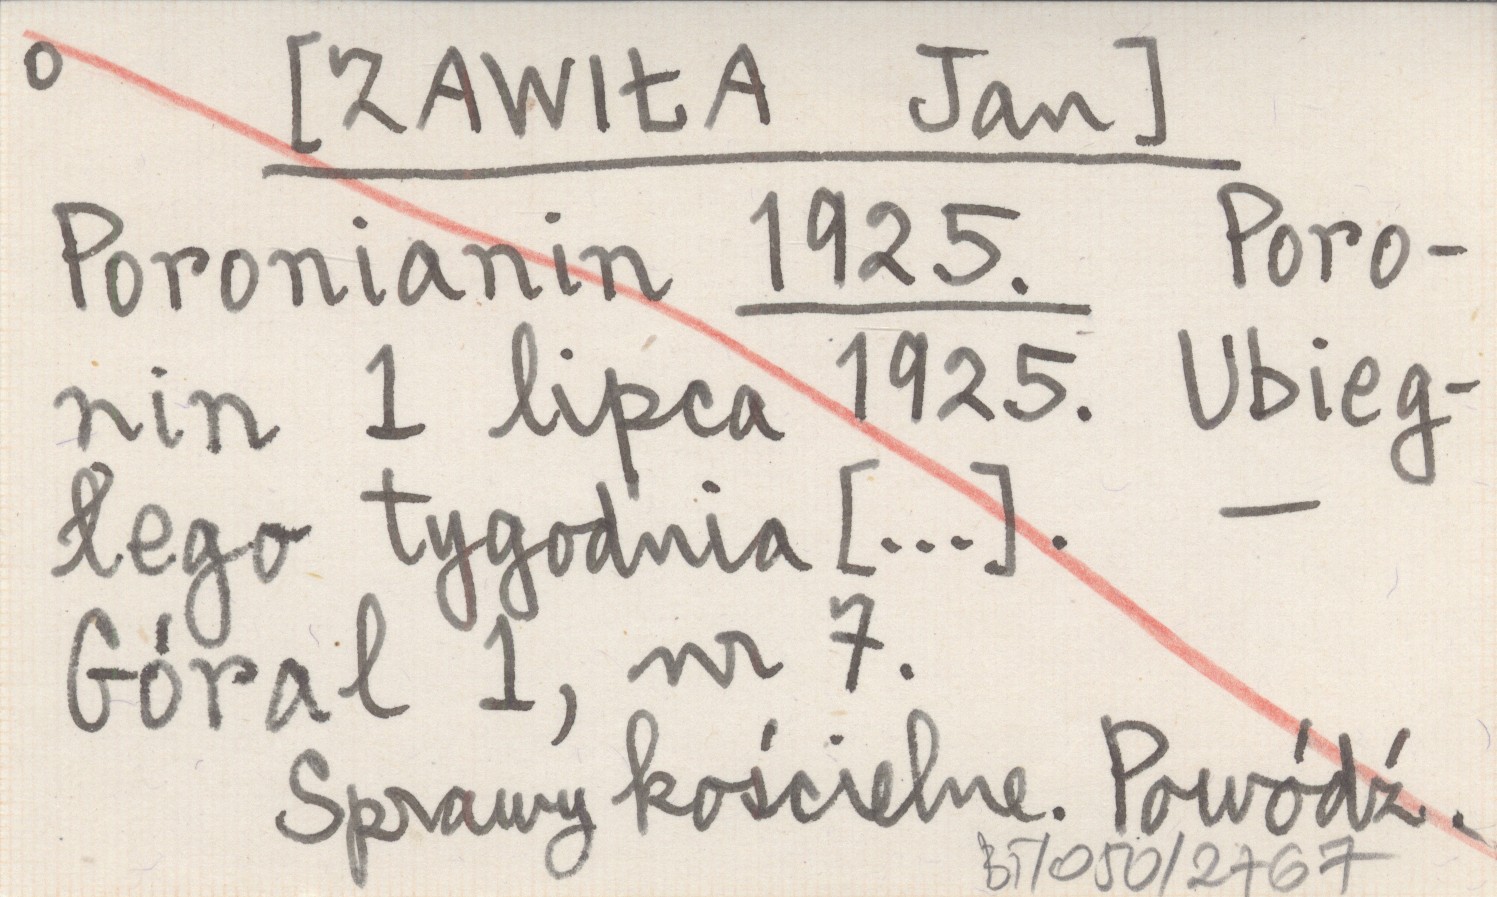 o [ZAWIŁA Jan]
Poronianin 1925. Poro-
nin 1 lipca 1925. Ubieg-
łego tygodnia [...]. —
Góral 1, nr 7.
Sprawy kościelne. Powódź.
BT/050/2767